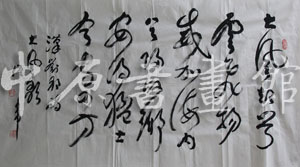 大風起兮
雲飛揚
威加海内
兮歸故鄉
安得猛士
兮守四方
漢劉邦
大風歌
中原書畫館